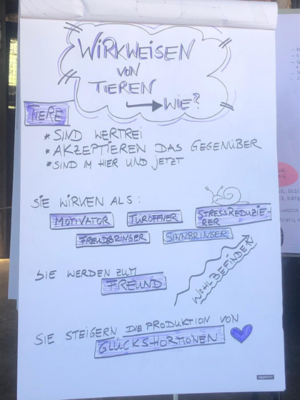 WIRKWEISEN
VON
TIEREN
→ WIE?
TIERE
* SIND WERTFREI
* AKZEPTIEREN DAS GEGENÜBER
* SIND IM HIER UND JETZT
SIE WIRKEN ALS:
MOTIVATOR TÜRÖFFNER STRESSREDUZIE-
RER
FREUDBRINGER SINNBRINGER
WOHLBEFINDEN
SIE WERDEN ZUM
FREUND
SIE STEIGERN DIE PRODUKTION VON
GLÜCKSHORMONEN